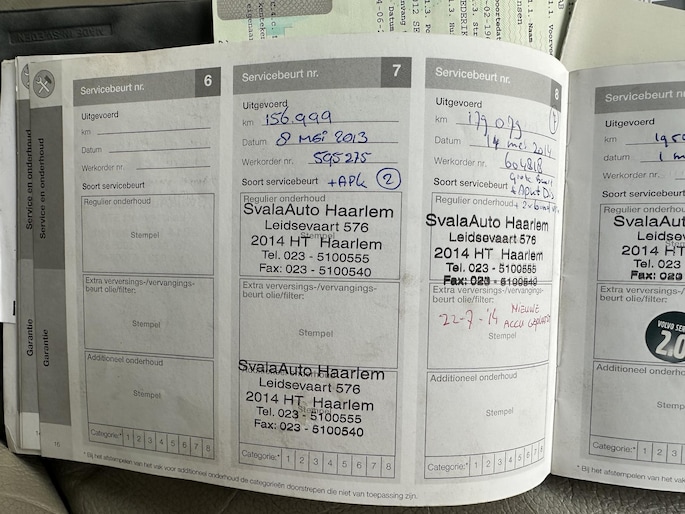 Servicebeurt nr. 6
Uitgevoerd
km
Datum
Werkorder nr.
Soort servicebeurt
Regulier onderhoud
Stempel
Extra verversings-/vervangings-
beurt olie/filter:
Stempel
Additioneel onderhoud
Stempel
Categorie:* 1 2 3 4 5 6 7 8
Servicebeurt nr. 7
Uitgevoerd
km 156.999
Datum 8 MEI 2013
Werkorder nr. 595275
Soort servicebeurt +APK 2
Regulier onderhoud
SvalaAuto Haarlem
Leidsevaart 576
Stempel
2014 HT Haarlem
Tel. 023 - 5100555
Fax: 023 - 5100540
Extra verversings-/vervangings-
beurt olie/filter:
Stempel
SvalaAuto Haarlem
Leidsevaart 576
2014 HT Haarlem
Tel. 023 - 5100555
Fax: 023 - 5100540
Categorie:* 1 2 3 4 5 6 7 8
Servicebeurt nr. 8
Uitgevoerd
km 179 079
Datum 14 mei 2014
Werkorder nr. 604818
Soort servicebeurt
Regulier onderhoud
SvalaAuto Haarlem
Leidsevaart 576
2014 HT Haarlem
Tel. 023 - 5100555
Fax: 023 - 5100540
Extra verversings-/vervangings-
beurt olie/filter:
22-7-'14 NIEUWE
ACCU
Stempel
Additioneel onderhoud
Stempel
Categorie:* 1 2 3 4 5 6 7 8
* Bij het afstempelen van het vak voor additioneel onderhoud de categorieën doorstrepen die niet van toepassing zijn.
Servicebeurt
Uitgevoerd
km
datum
Werkorder nr.
Soort servicebeurt
Regulier
SvalaAuto
Leidsevaart
2014 HT
Tel. 023
Fax: 023
Extra verversings-
beurt olie/filter:
VOLVO
2.0
Additioneel onderhoud
Categorie:* 1 2 3
* Bij het afstempelen van het vak
Service en onderhoud
Garantie
Service en onderhoud
Garantie
16